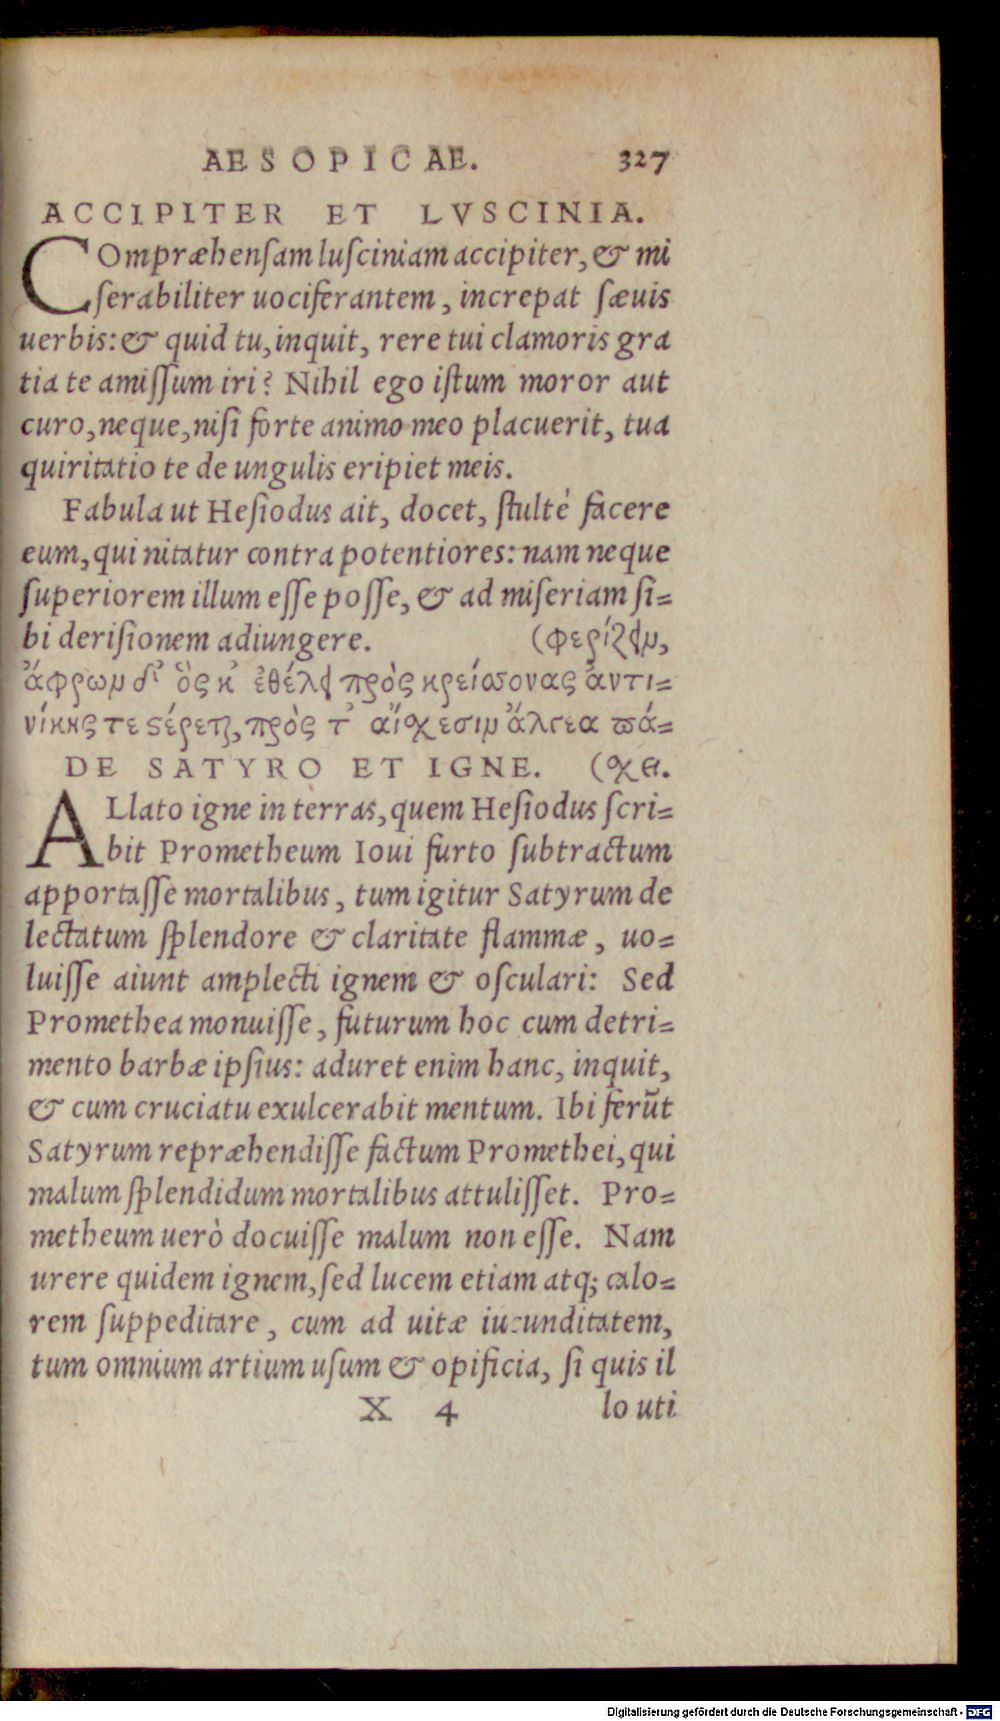 AESOPICAE. 327
ACCIPITER ET LVSCINIA.
COmpræhenſam luſciniam accipiter, & mi
ſerabiliter uociferantem, increpat ſæuis
uerbis: & quid tu, inquit, rere tui clamoris gra
tia te amiſſum iri? Nihil ego iſtum moror aut
curo, neque, niſi forte animo meo placuerit, tua
quiritatio te de ungulis eripiet meis.
Fabula ut Heſiodus ait, docet, ſtultè facere
eum, qui nitatur contra potentiores: nam neque
ſuperiorem illum eſſe poſſe, & ad miſeriam ſi=
bi deriſionem adiungere. (φερίζειν,
ἄφρων δ' ὃς κ' ἐθέλει πρὸς κρείσσονας ἀντι=
νίκης τε στέρεται, πρὸς τ' αἴσχεσιν ἄλγεα πά=
DE SATYRO ET IGNE. (σχει.
ALlato igne in terras, quem Heſiodus ſcri=
bit Prometheum Ioui furto ſubtractum
apportaſſe mortalibus, tum igitur Satyrum de
lectatum ſplendore & claritate flammæ, uo=
luiſſe aiunt amplecti ignem & oſculari: Sed
Promethea monuiſſe, futurum hoc cum detri=
mento barbæ ipſius: aduret enim hanc, inquit,
& cum cruciatu exulcerabit mentum. Ibi ferũt
Satyrum repræhendiſſe factum Promethei, qui
malum ſplendidum mortalibus attuliſſet. Pro=
metheum uerò docuiſſe malum non eſſe. Nam
urere quidem ignem, ſed lucem etiam atq; calo=
rem ſuppeditare, cum ad uitæ iucunditatem,
tum omnium artium uſum & opificia, ſi quis il
X 4 lo uti
Digitalisierung gefördert durch die Deutsche Forschungsgemeinschaft - DFG